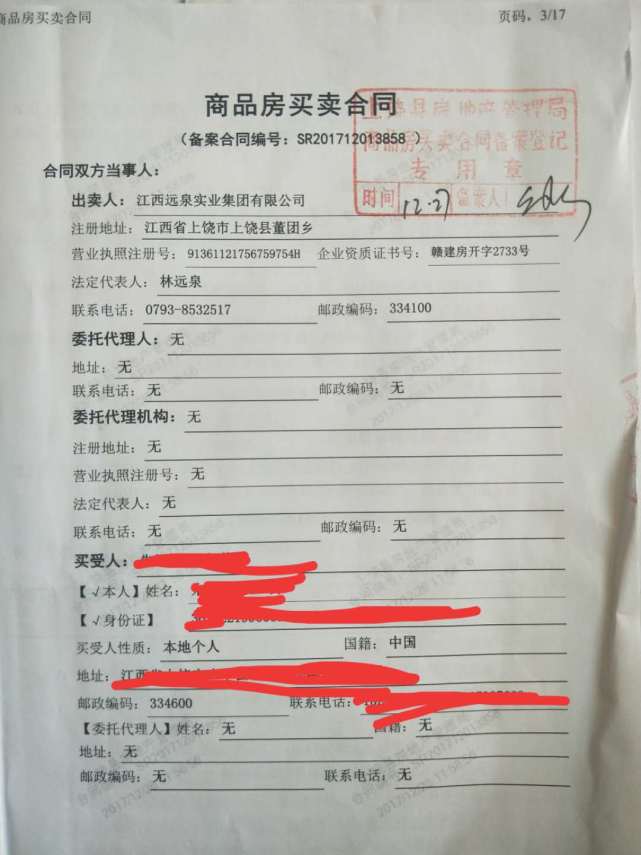 商品房买卖合同
页码，3/17
商品房买卖合同
（备案合同编号：SR201712013858 ）
上饶县房地产管理局
商品房买卖合同备案登记
专用章
时间 12.27 备案人
合同双方当事人：
出卖人：江西远泉实业集团有限公司
注册地址：江西省上饶市上饶县董团乡
营业执照注册号：91361121756759754H 企业资质证书号：赣建房开字2733号
法定代表人：林远泉
联系电话：0793-8532517 邮政编码：334100
委托代理人：无
地址：无
联系电话：无 邮政编码：无
委托代理机构：无
注册地址：无
营业执照注册号：无
法定代表人：无
联系电话：无 邮政编码：无
买受人：
【√本人】姓名：
【√身份证】
买受人性质：本地个人 国籍：中国
地址：江西省
邮政编码：334600 联系电话：
【委托代理人】姓名：无 国籍：无
地址：无
邮政编码：无 联系电话：无